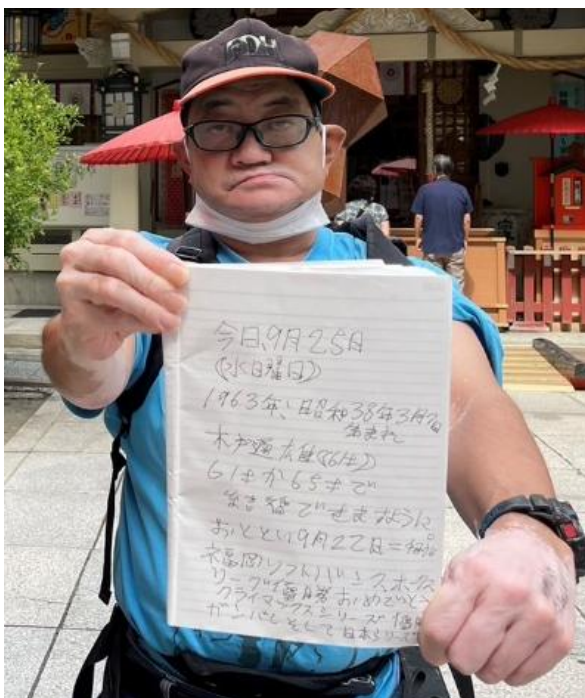 今日、9月25日
(水曜日)
1963年、昭和38年3月7日
生まれ
(61才)
61才か65才で
結婚できますように
おととい9月2
福岡ソフトバンクホークス
リーグ優勝おめでとう
クライマックスシリーズ
ガンバレそして日本シリーズ